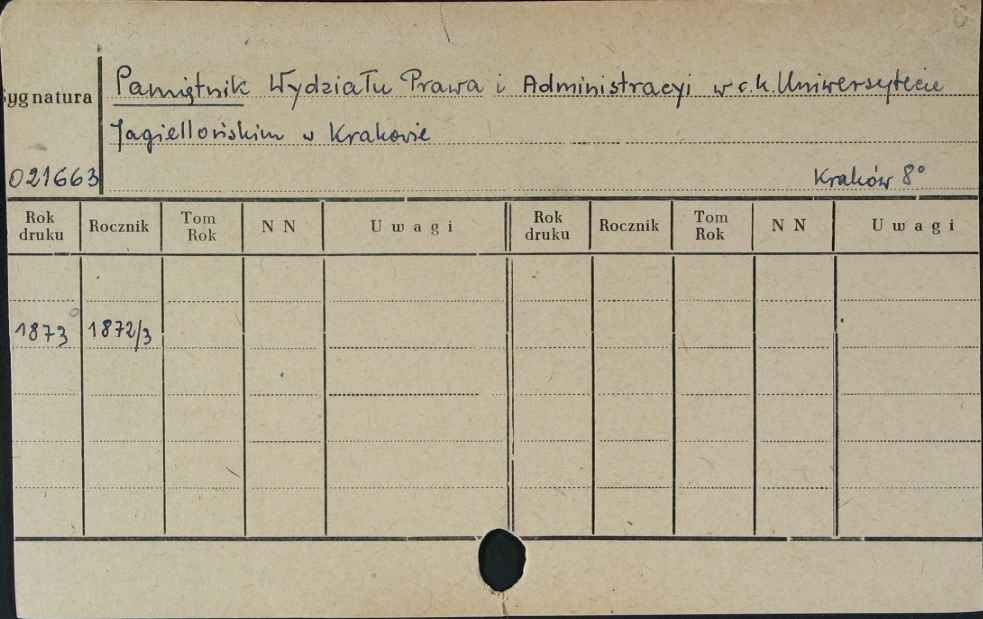 Pamiętnik Wydziału Prawa i Administracyi w c.k. Uniwersytecie
ygnatura
Jagiellońskim w Krakowie
021663
Kraków 8°
Rok druku Rocznik Tom Rok N N Uwagi Rok druku Rocznik Tom Rok N N Uwagi
1873 1872/3